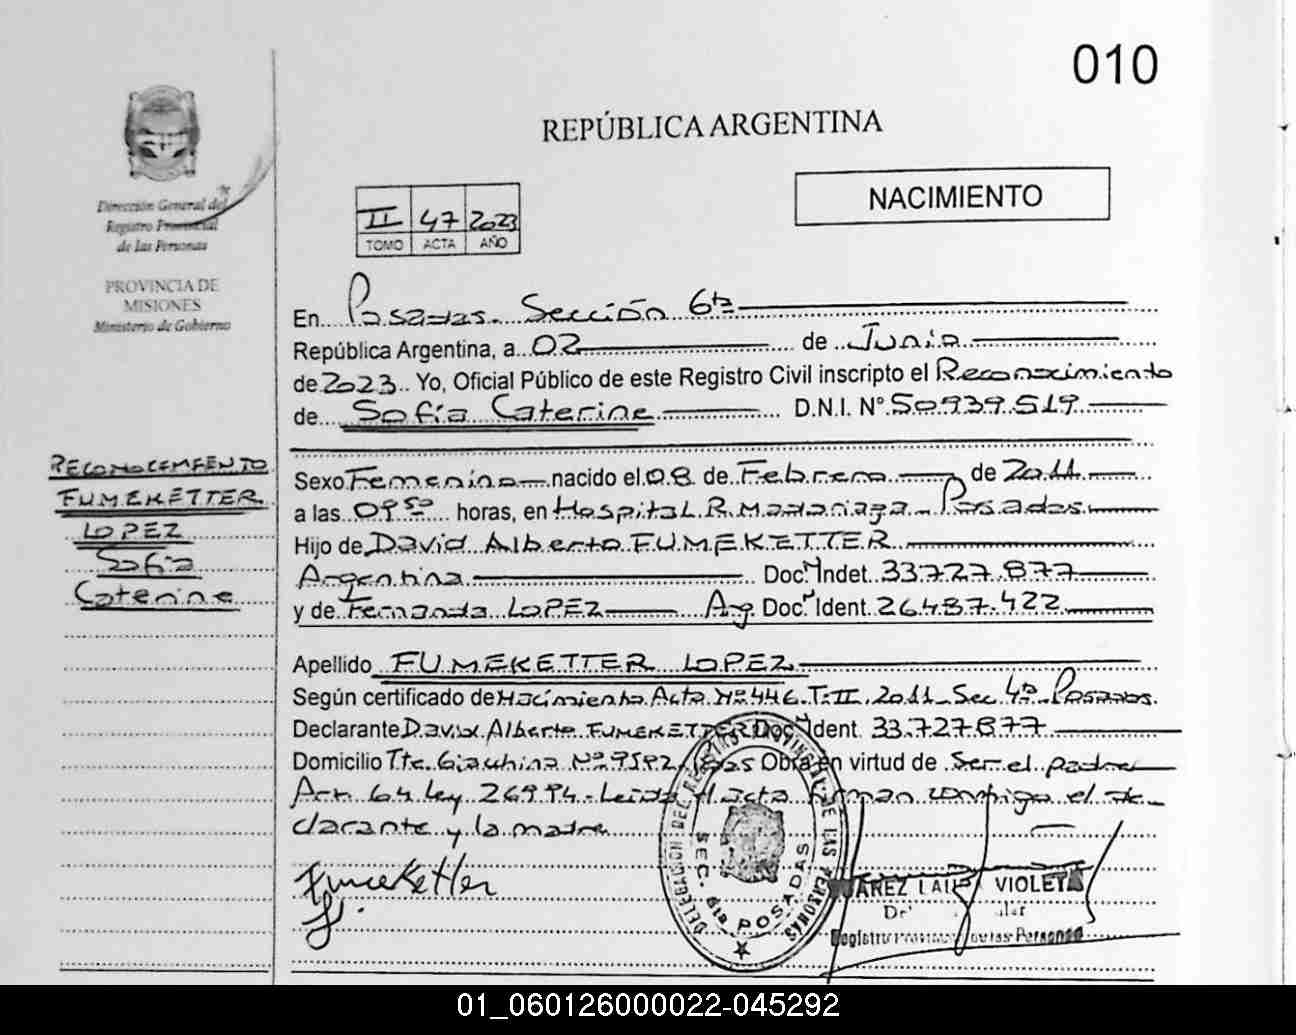 010
REPÚBLICA ARGENTINA
NACIMIENTO
II 47 2023
TOMO ACTA AÑO
Dirección General del
Registro Provincial
de las Personas
PROVINCIA DE
MISIONES
Ministerio de Gobierno
En Posadas. Sección 6ta
República Argentina, a 02 de Junio
de 2023 Yo, Oficial Público de este Registro Civil inscripto el Reconocimiento
de Sofía Caterine D.N.I. N° 50939.519
RECONOCIMIENTO
FUMEKETTER
LOPEZ
Sofia
Caterine
Sexo Femenino nacido el 08 de Febrero de 2011
a las 09 50 horas, en Hospital R. Madariaga - Posadas
Hijo de David Alberto FUMEKETTER
Argentina Doc. Indet. 33.727.877
y de Fernanda LOPEZ Arg. Doc. Ident. 26.487.422
Apellido FUMEKETTER LOPEZ
Según certificado de Nacimiento Acta N° 446 T. II. 2011 Sec 4ta Posadas.
Declarante David Alberto FUMEKETTER Doc. Ident. 33.727.877
Domicilio Tte. Giachino N° Obra en virtud de Ser el padre
Art. 64 ley 26994 - Leida el acta firman conmigo el de-
clarante y la madre
Fumeketter
DELEGACION DEL REGISTRO PROVINCIAL DE LAS PERSONAS
SEC. 6ta. POSADAS
VIOLETA
Registro Provincial de las Personas
01_060126000022-045292